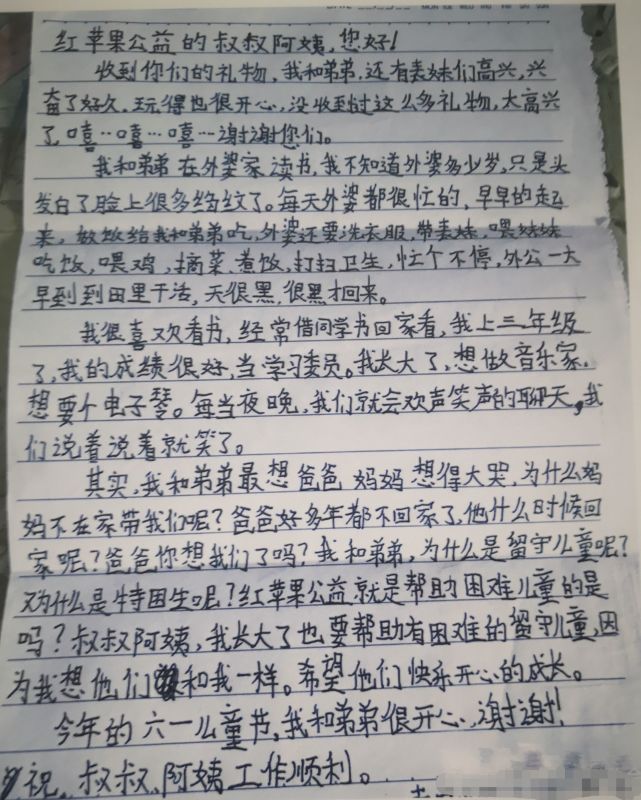 红苹果公益的叔叔阿姨,您好!
收到你们的礼物,我和弟弟,还有表妹们高兴,兴
奋了好久.玩得也很开心,没收到过这么多礼物,太高兴
了,嘻…嘻…嘻…谢谢您们。
我和弟弟在外婆家读书,我不知道外婆多少岁,只是头
发白了脸上很多绉纹了。每天外婆都很忙的,早早的起
来,做饭给我和弟弟吃,外婆还要洗衣服,带表妹,喂妹妹
吃饭,喂鸡,摘菜,煮饭,打扫卫生,忙个不停,外公一大
早到到田里干活,天很黑,很黑才回来。
我很喜欢看书,经常借同学书回家看,我上三年级
了,我的成绩很好,当学习委员。我长大了,想做音乐家.
想要个电子琴。每当夜晚,我们就会欢声笑声的聊天,我
们说着说着就笑了。
其实,我和弟弟最想爸爸妈妈想得大哭,为什么妈
妈不在家带我们呢?爸爸好多年都不回家了,他什么时候回
家呢?爸爸你想我们了吗?我和弟弟,为什么是留守儿童呢?
为什么是特困生呢?红苹果公益就是帮助困难儿童的是
吗?叔叔阿姨,我长大了也要帮助有困难的留守儿童,因
为我想他们和我一样。希望他们快乐开心的成长。
今年的六一儿童节,我和弟弟很开心,谢谢!
祝,叔叔,阿姨工作顺利。